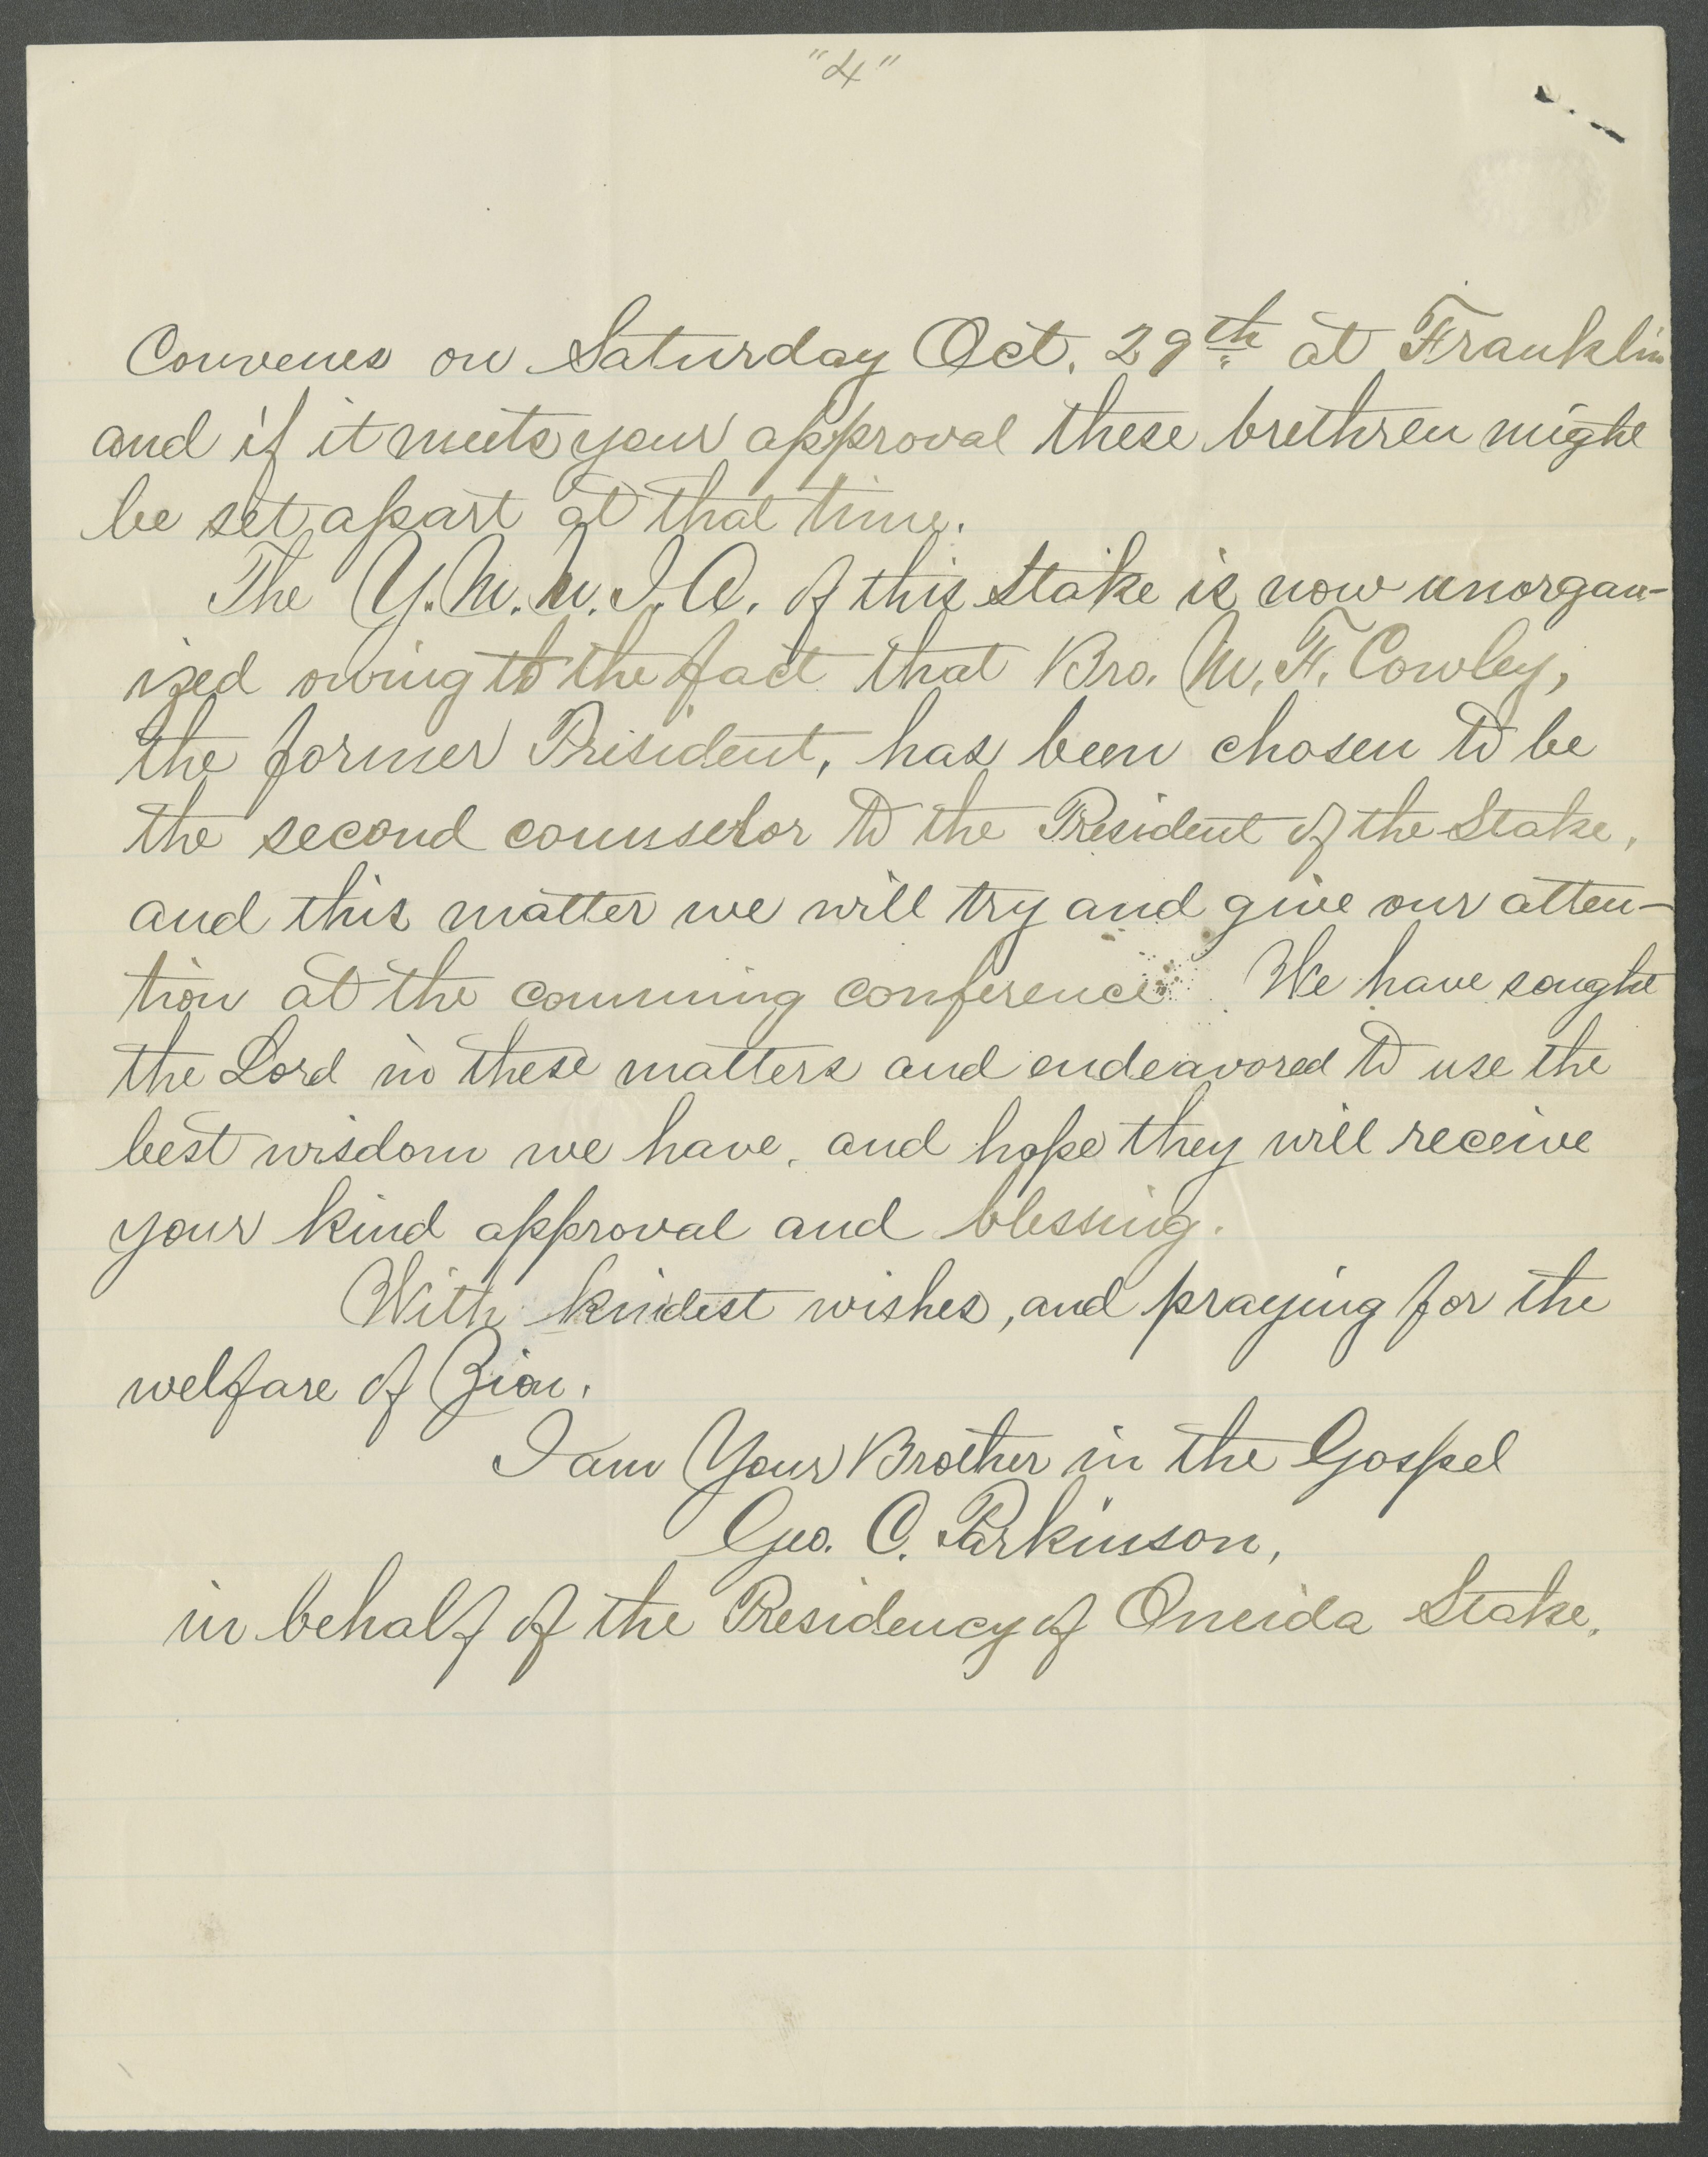 "4"
Convenes on Saturday Oct. 29th at Franklin
and if it meets your approval these brethren might
be set apart at that time.
The Y.M.M.I.A. of this Stake is now unorgan-
ized owing to the fact that Bro. M. F. Cowley,
the former President, has been chosen to be
the second counselor to the President of the Stake,
and this matter we will try and give our atten-
tion at the comming conference. We have sought
the Lord in these matters and endeavored to use the
best wisdom we have, and hope they will receive
your kind approval and blessing.
With kindest wishes, and praying for the
welfare of Zion.
I am Your Brother in the Gospel
Geo. C. Parkinson,
in behalf of the Presidency of Oneida Stake.